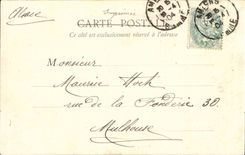 Alsace
CARTE POSTALE
Ce côté est exclusivement réservé à l'adresse
Monsieur
Maurice Hoch
rue de la Fonderie 30.
Mulhouse